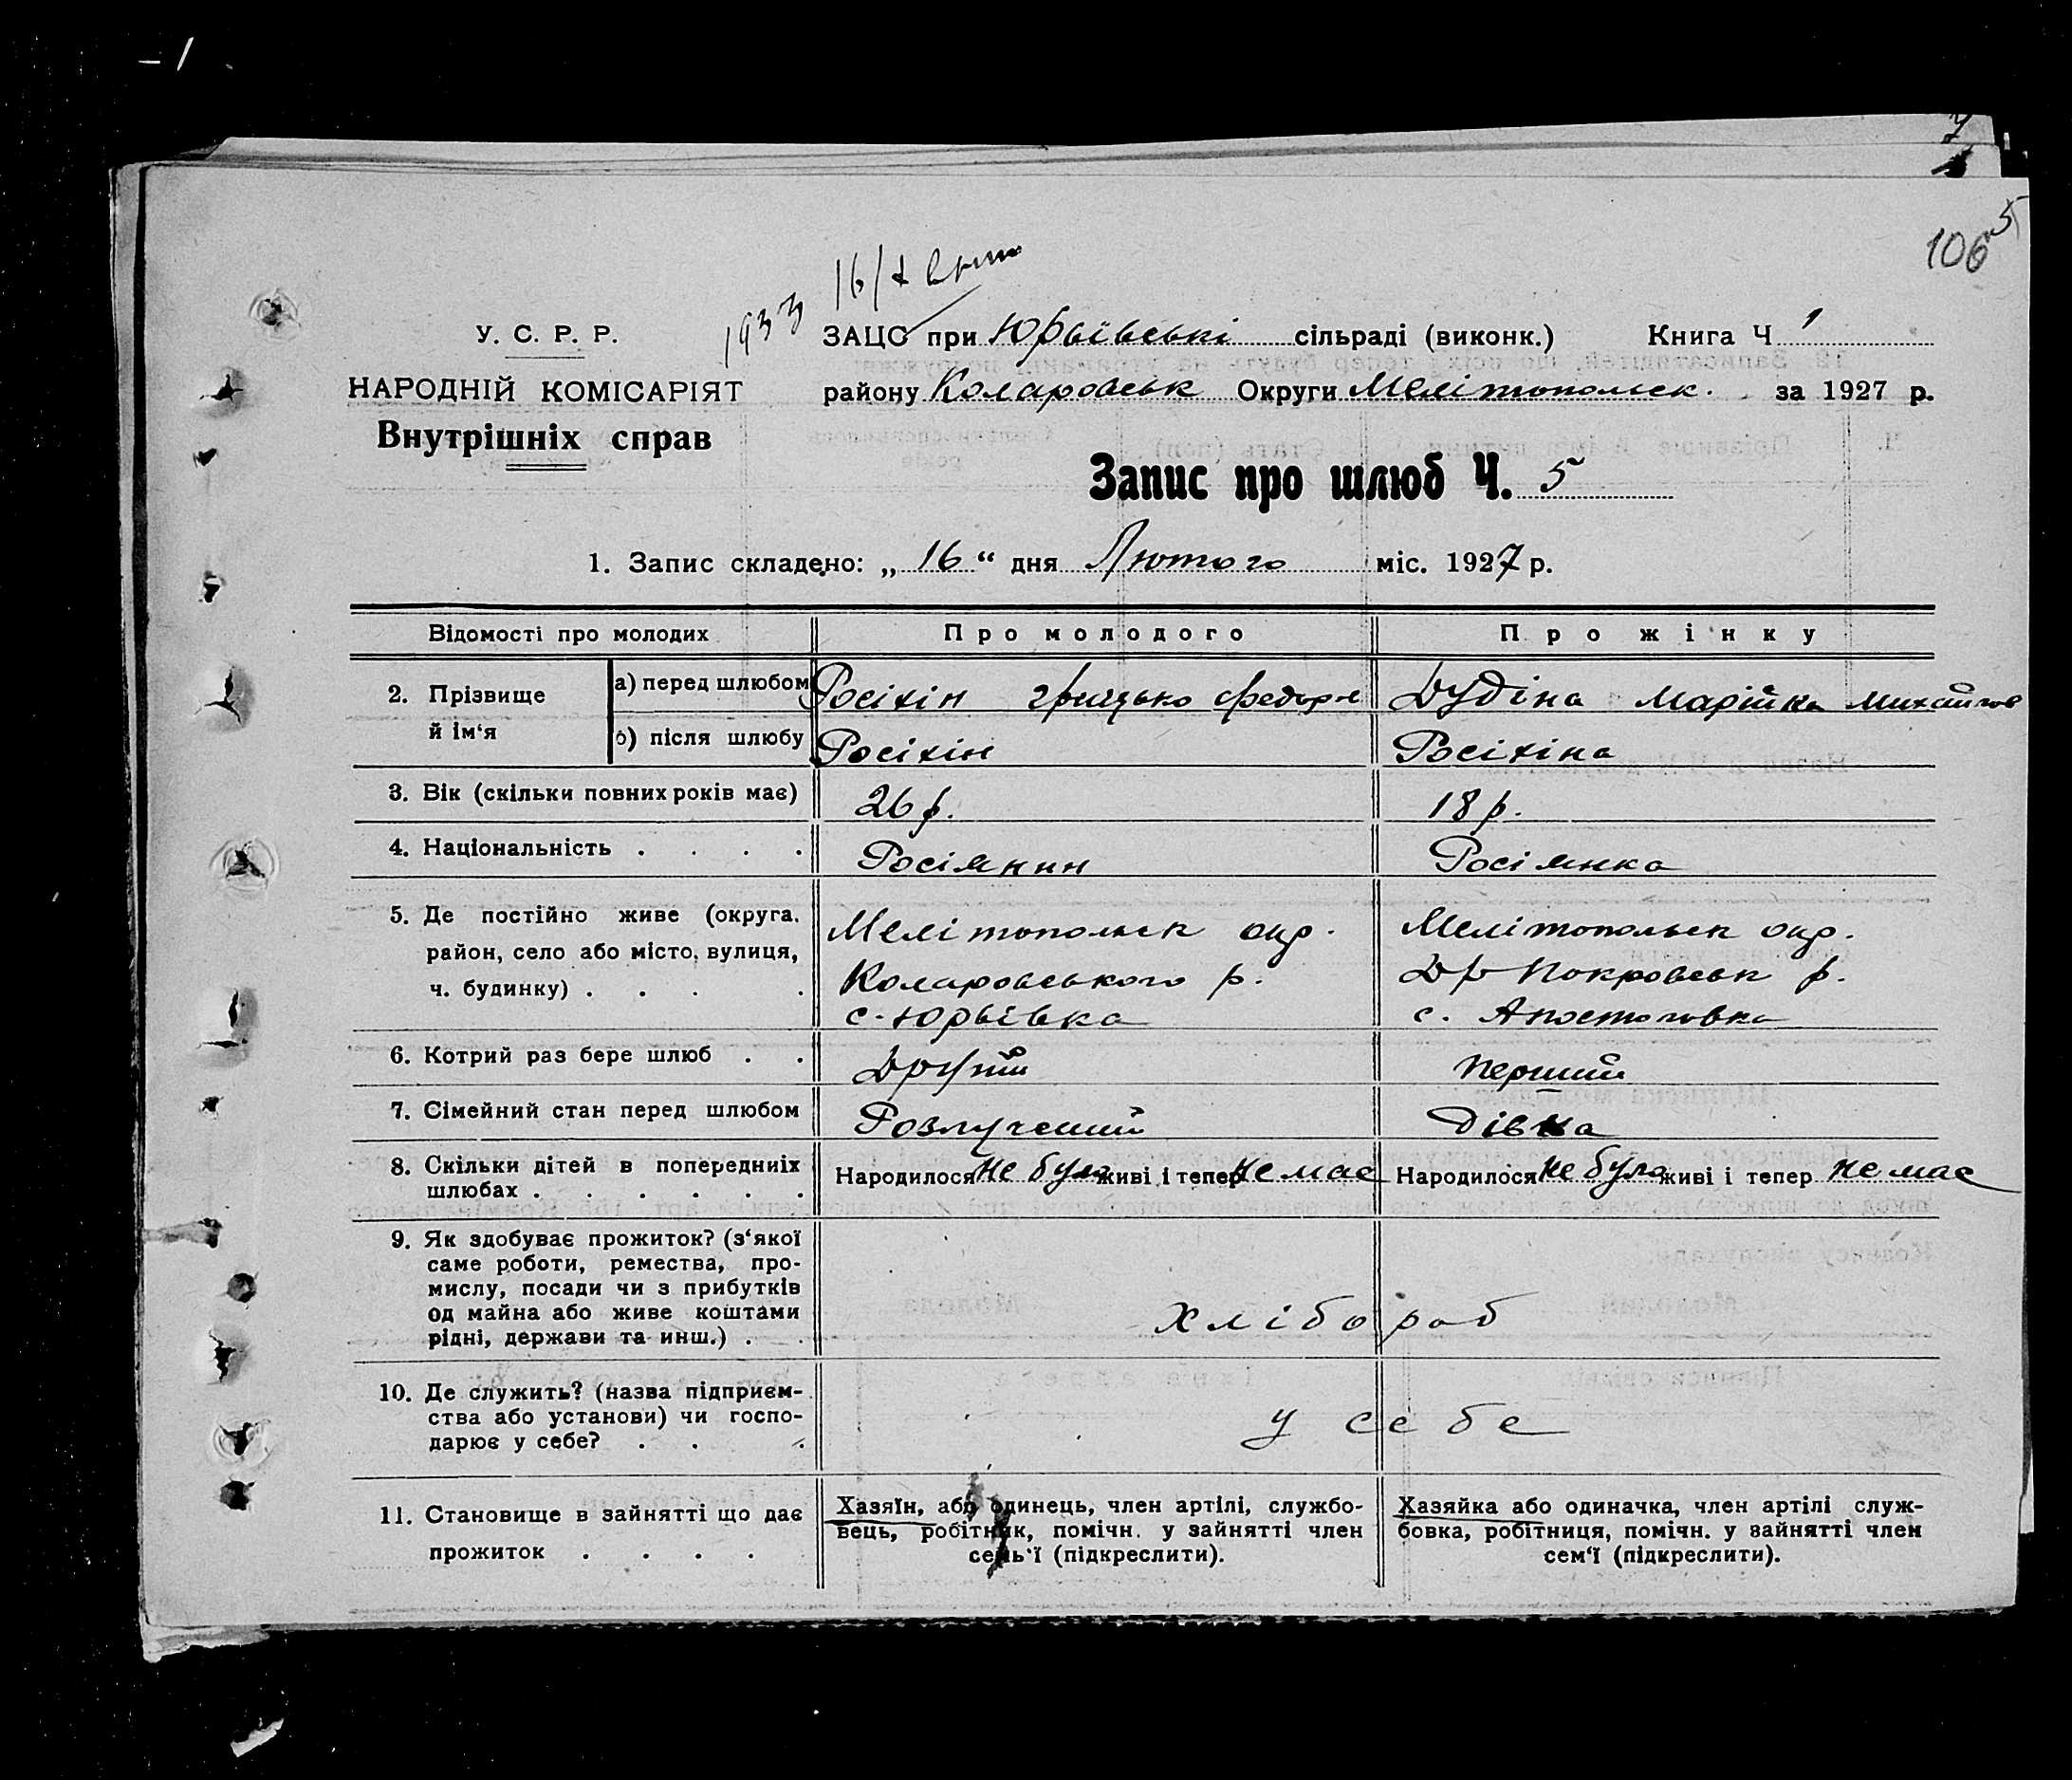 106
5
16/
1933
У. С. Р. Р.
НАРОДНІЙ КОМІСАРІЯТ
Внутрішніх справ
ЗАЦС при Юрьївські сільраді (виконк.) Книга Ч 1
району Коларовськ Округи Мелітопольск. за 1927 р.
Запис про шлюб Ч. 5
1. Запис складено: „ 16 “ дня Лютого міс. 1927 р.
Відомості про молодих Про молодого Про жінку
2. Прізвище й ім‘я
а) перед шлюбом Росіхін Грицько Федор Дудіна Марійка Михайлов
б) після шлюбу Росіхін Росіхіна
3. Вік (скільки повних років має) 26 р. 18 р.
4. Національність . . . . Росіянин Росіянка
5. Де постійно живе (округа, Мелітопольск окр. Мелітопольск окр.
район, село або місто, вулиця, Коларовського р. Др Покровськ р.
ч. будинку) . . . . с. Юрьївка с. Апостоловка
6. Котрий раз бере шлюб . . Другий перший
7. Сімейний стан перед шлюбом Розлучений дівка
8. Скільки дітей в попередниіх Народилося не було живі і тепер не має Народилося не було живі і тепер не має
шлюбах . . . . . .
9. Як здобуває прожиток? (з‘якої
саме роботи, ремества, про-
мислу, посади чи з прибутків
од майна або живе коштами хлібороб
рідні, держави та инш.) . .
10. Де служить? (назва підприєм-
ства або установи) чи госпо- у себе
дарює у себе? . . .
11. Становище в зайнятті що дає
прожиток . . . .
Хазяїн, або одинець, член артілі, службо-
вець, робітник, помічн. у зайнятті член
семь‘ї (підкреслити).
Хазяйка або одиначка, член артілі служ-
бовка, робітниця, помічн. у зайнятті член
сем‘ї (підкреслити).